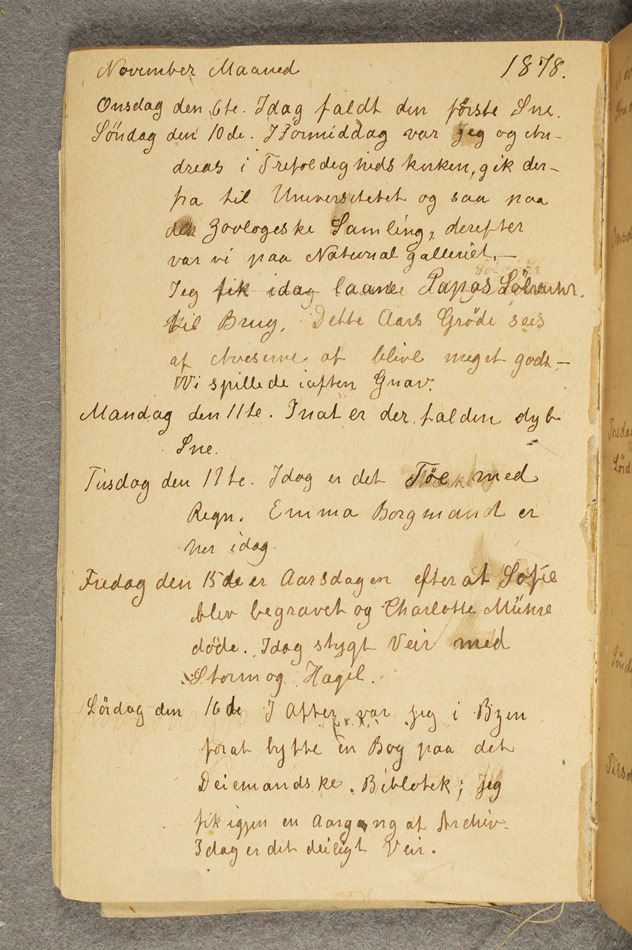 November Maaned 1878.
Onsdag den 6te. Idag faldt den første Sne.
Søndag den 10de. I Formiddag var jeg og An-
dreas i Trefoldigheds kirken, gik der-
fra til Universitetet og saa paa
den Zoologeske Samling, derefter
var vi paa National galleriet.—
Jeg fik idag laane Papas Sølvuhr.
til Brug. Dette Aars Grøde sees
af Aviserne at blive meget godt —
Wi spillede iaften Gnav.
Mandag den 11te. Inat er der falden dyb
Sne.
Tirsdag den 12te. Idag er det Tøe med
Regn. Emma Borgmand er
her idag.
Fredag den 15de er Aarsdagen efter at Sofie
blev begravet og Charlotte
døde. Idag stygt Veir med
Storm og Hagel.
Lørdag den 16de I Aften var jeg i Byen
forat bytte en Bog paa det
Deiemandske Bibliotek; Jeg
fik igjen en Aargang af Archiv.
Idag er det deiligt Veir.